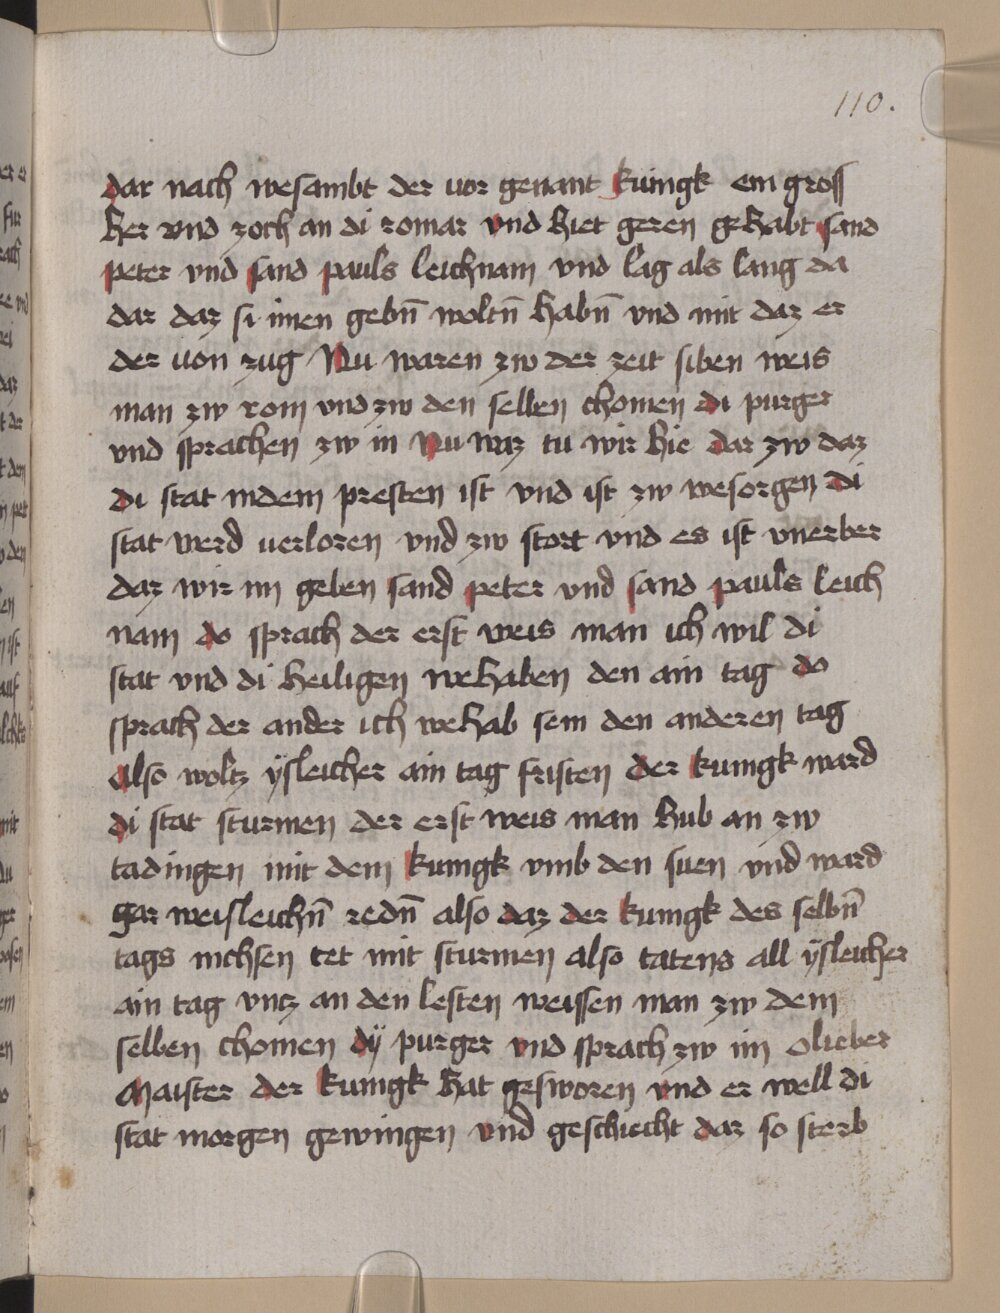 110.
dar nach wesambt der vor genant kunigk ein gross
her vnd zoch an di romar vnd hiet geren gehabt sand
peter vnd sand pauls leichnam vnd lag als lang da
dar daz si imen gebn̄ woltn̄ habn̄ vnd mit daz er
der von zug Nu waren zw der zeit siben weis
man zw rom vnd zw den selben chomen di purger
vnd sprachen zw in Nu waz tu wir hie dar zw daz
di stat indem presten ist vnd ist zw wesorgen di
stat werd verloren vnd zw stort vnd es ist vnerber
daz wir im geben sand peter vnd sand pauls leich
nam do sprach der erst weis man ich wil di
stat vnd di heiligen wehaben den ain tag do
sprach der ander ich wehab sein den anderen tag
also woltz ÿsleicher ain tag fristen der kunigk ward
di stat sturmen der erst weis man hub an zw
tadingen mit dem kunigk vmb den suen vnd ward
gar weisleichn̄ redn̄ also daz der kunigk des selbn̄
tags nichsen tet mit sturmen also tatens all ÿsleicher
ain tag vntz an den lesten weissen man zw dem
selben chomen dÿ purger vnd sprach zw im o lieber
Maister der kunigk hat gesworen vnd er well di
stat morgen gewingen vnd geschiecht daz so sterb